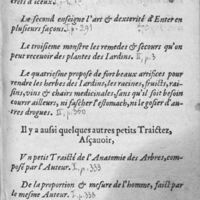 crois d'iceux.
Le second enseigne l'art & dexterité d'Enter en
plusieurs façons. I. p. 291
Le troisieme monstre les remedes & secours qu'on
peut recevoir des plantes des Iardins. II, p. 3
Le quatriesme propose de fort beaux artifices pour
rendre les herbes des Iardins, les racines, fruicts, rai-
sins, vins & chairs medicinales, sans qu'il soit besoin
courir ailleurs, ni fascher l'estomach, ni le gosier d'au-
tres drogues. II, p. 360
Il y a aussi quelques autres petits Traictez,
Asçauoir,
Vn petit Traicté de l'Anatomie des Arbres, com-
posé par l'Auteur. I, p. 333
De la proportion & mesure de l'homme, faict par
le mesme Auteur. I, p. 338